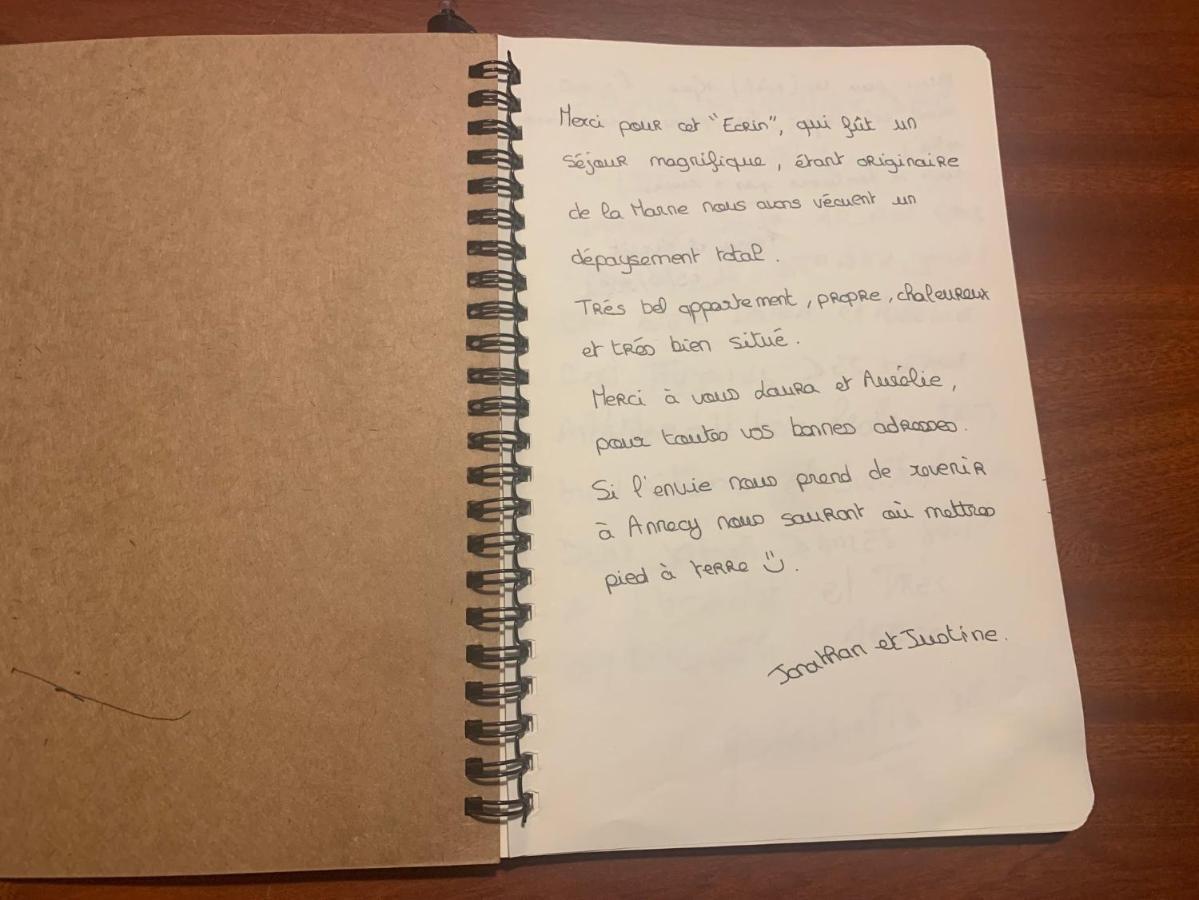 Merci pour cet "Ecrin", qui fût un
séjour magnifique, étant originaire
de la Marne nous avons vécuent un
dépaysement total.
Trés bel appartement, propre, chaleureux
et trés bien situé.
Merci à vous Laura et Aurélie,
pour toutes vos bonnes adresses.
Si l'envie nous prend de revenir
à Annecy nous sauront où mettres
pied à terre :)
Jonathan et Justine.